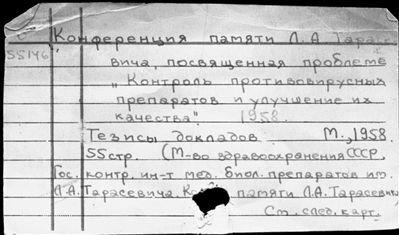 Конференция памяти Л.А Тарасе
55146
вича, посвященная проблеме
„Контроль противовирусных
препаратов и улучшение их
качества". 1958.
Тезисы докладов М., 1958.
55 стр. (М-во здравоохранения СССР.
Гос. контр. ин-т мед. биол. препаратов им.
Л.А. Тарасевича. памяти Л.А. Тарасевича
См. след. карт.